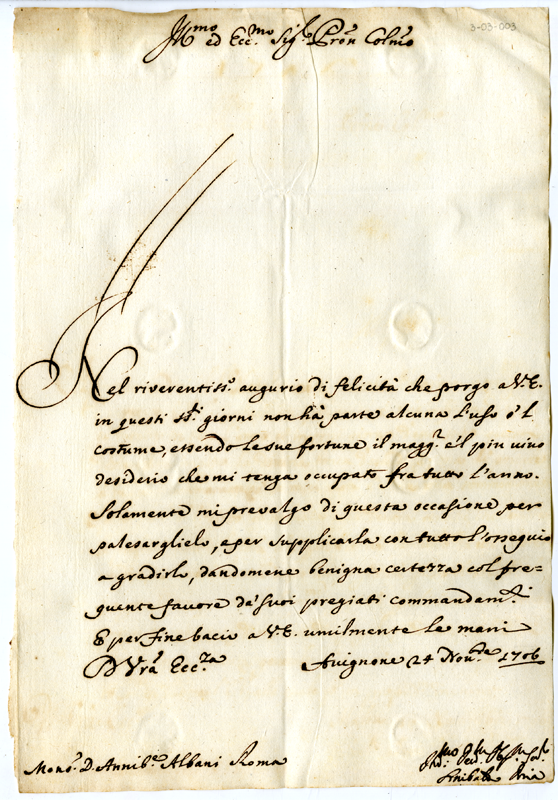 3-03-003
Ill:mo ed Ecc:mo Sig:r Pron Colmo
Nel riverentiss:o augurio di felicità che porgo a V.E.
in questi SS:ti giorni non hà parte alcuna l'uso ò 'l
costume, essendo le sue fortune il magg:r e 'l piu vivo
desiderio che mi tenga occupato fra tutto l'anno.
Solamente mi prevalgo di questa occasione per
palesarglielo, e per supplicarla con tutto l'ossequio
a gradirlo, dandomene benigna certezza col fre=
quente favore de' suoi pregiati commandam:ti
E per fine bacio a V.E. umilmente le mani
D Vrã Ecc:za Avignone 24 Nov:bre 1706
Mons:r D. Annib:e Albani Roma
Sinibaldo Doria